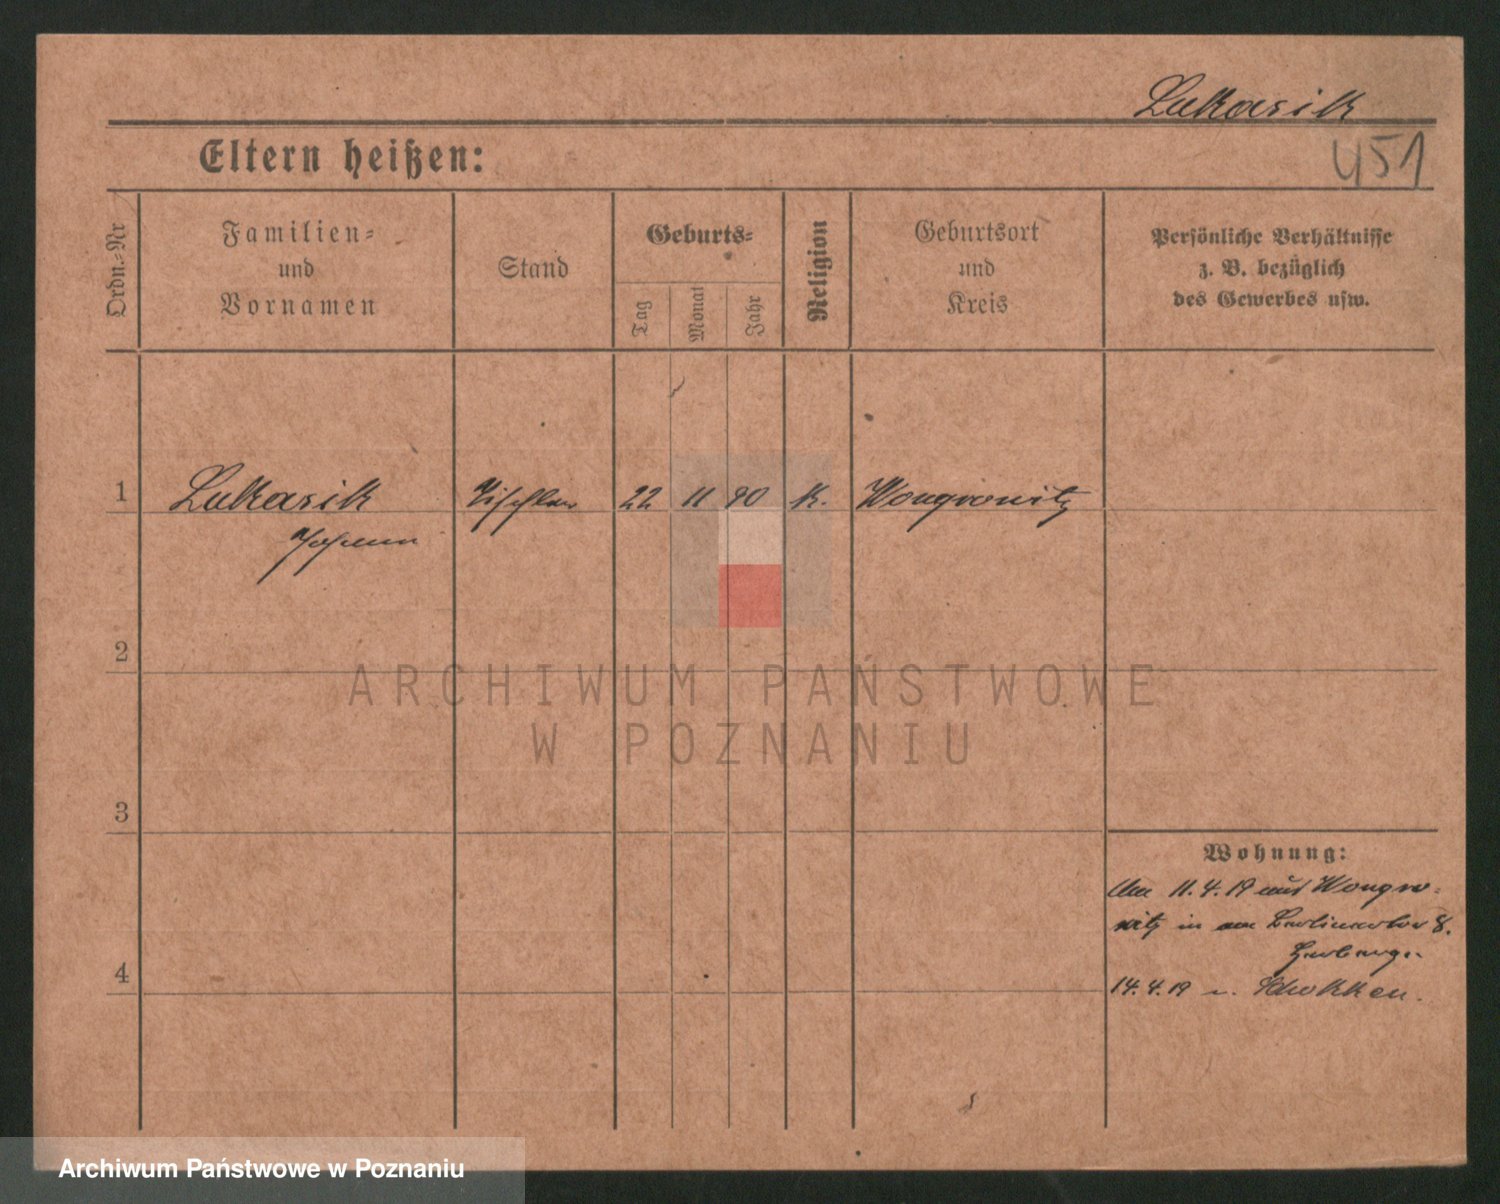 Lukasik
451
Eltern heißen:
Ordn.-Nr
Familien-
und
Vornamen
Stand
Geburts-
Tag
Monat
Jahr
Religion
Geburtsort
und
Kreis
Persönliche Verhältnisse
z. B. bezüglich
des Gewerbes usw.
1 Lukasik Tischler 22 11 90 K. Wongrowitz
Johann
2
ARCHIWUM PAŃSTWOWE
W POZNANIU
3
Wohnung:
Am 11.4.19 aus Wongro-
witz in Berlinerstr 8.
Herberge
4
14.4.19 n. Schokken.
Archiwum Państwowe w Poznaniu